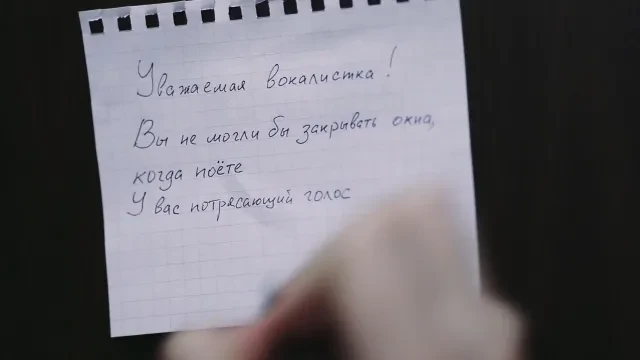 Уважаемая вокалистка!
Вы не могли бы закрывать окна,
когда поёте
У вас потрясающий голос